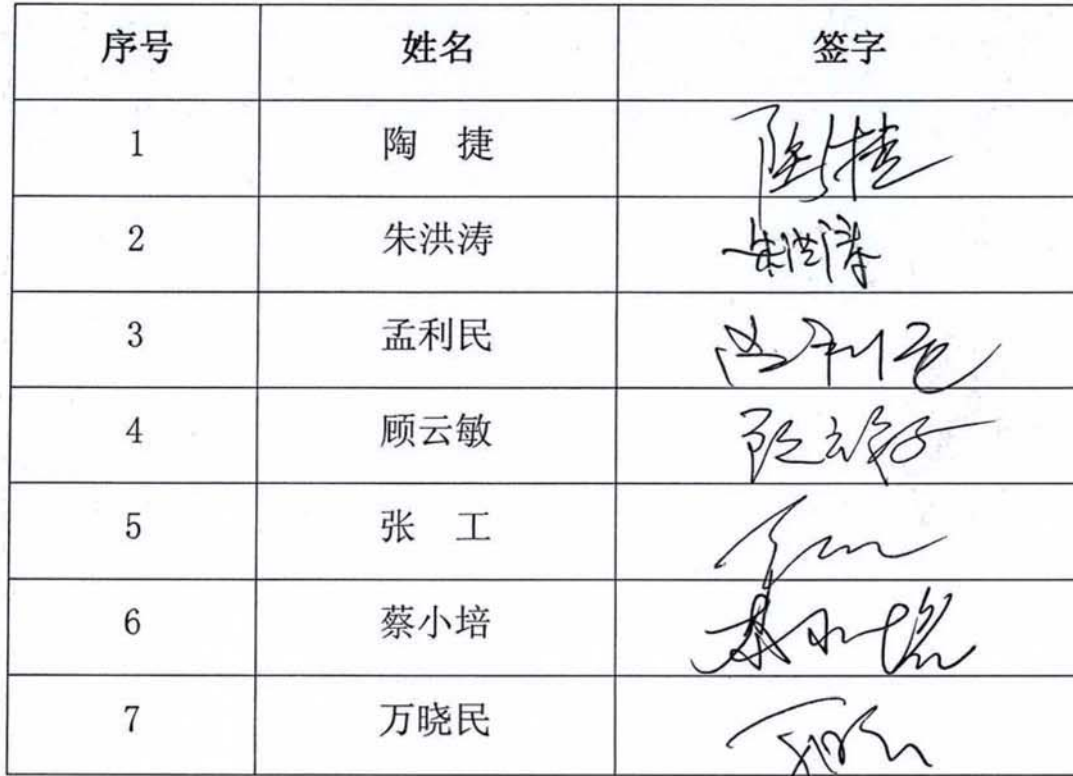 序号 姓名 签字
1 陶 捷 陶捷
2 朱洪涛 朱洪涛
3 孟利民 孟利民
4 顾云敏 顾云敏
5 张 工
6 蔡小培 蔡小培
7 万晓民